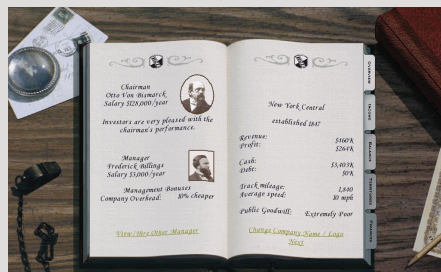 Chairman
Otto Von Bismarck
Salary $128,000/year
Investors are very pleased with the
chairman's performance.
Manager
Frederick Billings
Salary $3,000/year
Management Bonuses
Company Overhead: 10% cheaper
View/Hire Other Manager
New York Central
established 1847
Revenue: $460K
Profit: $264K
Cash: $3,403K
Debt: $0K
Track mileage: 1,840
Average speed: 10 mph
Public Goodwill: Extremely Poor
Change Company Name / Logo
Next
Overview
Income
Balance
Territories
Finances